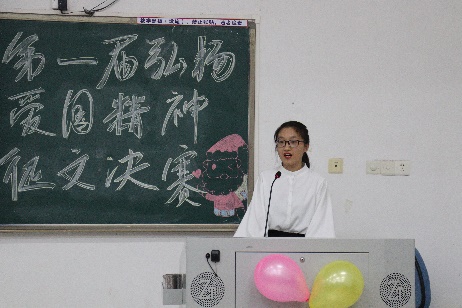 第一届弘扬
爱国精神
征文决赛